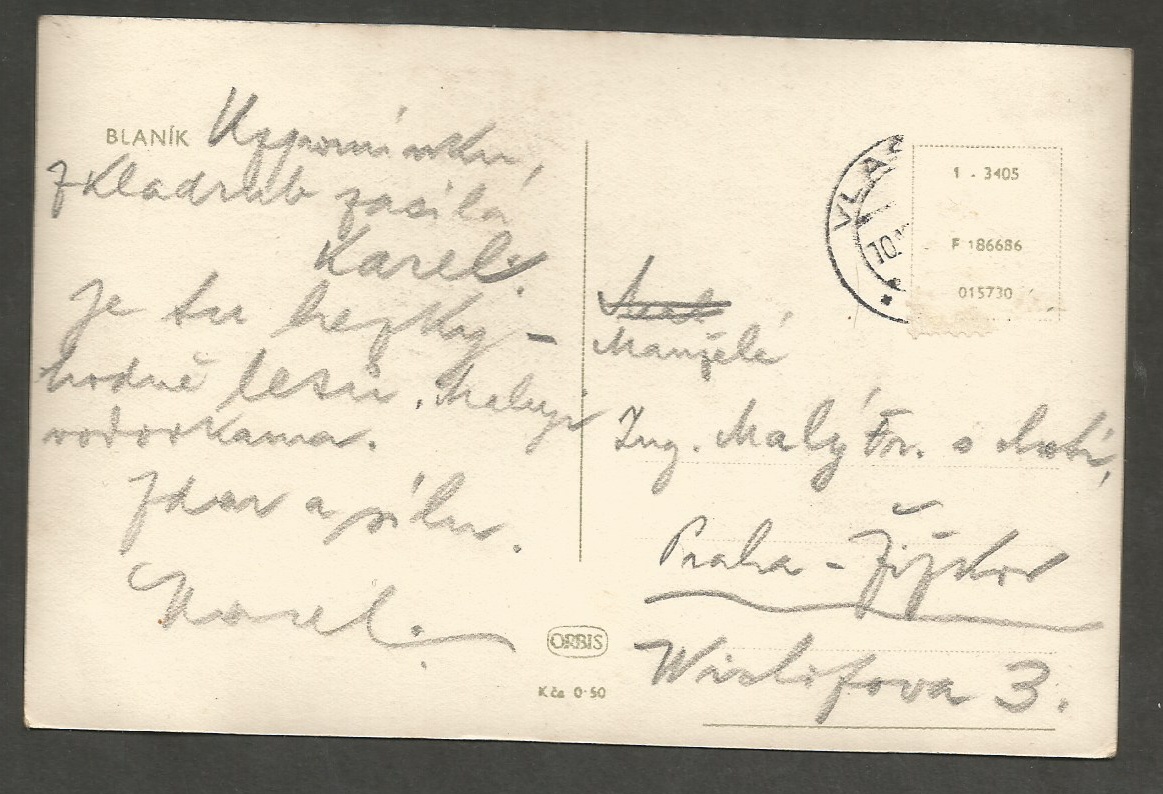 BLANÍK Vzpomínku,
z Kladrub zasílá
Karel.
Je tu hezky –
hodně lesů. Maluji
vodovkama.
Zdar a sílu.
Karel.
ORBIS
Kčs 0·50
VLAŠ
10.
1 - 3405
F 186686
015730
Manželé
Ing. Malý Fr. s chotí,
Praha – Žižkov
Wiclifova 3.